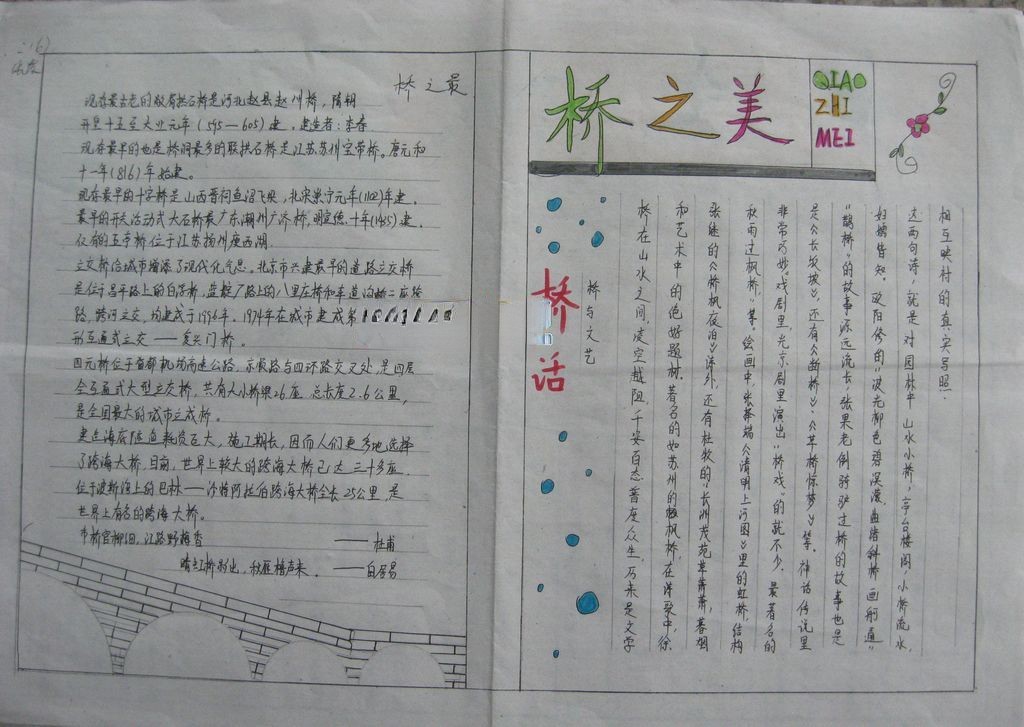 桥之最
现存最古老的敞肩拱石桥是河北赵县赵州桥，隋朝
开皇十五至大业元年(595—605)建，建造者：李春
现存最早的也是桥洞最多的联拱石桥是江苏苏州宝带桥。唐元和
十一年(816)年始建。
现存最早的十字桥是山西晋祠鱼沼飞梁，北宋崇宁元年(1102)年建。
最早的开关活动式大石桥是广东潮州广济桥，明宣德十年(1435)建。
仅有的五亭桥位于江苏扬州瘦西湖
立交桥给城市增添了现代化气息。北京市兴建最早的道路立交桥
是位于昌平路上的白浮桥，
路，跨河立交，均建成于1956年。1974年在城市建成第
形互通式立交——复兴门桥。
四元桥位于首都机场高速公路，京顺路与四环路交叉处，是四层
全互通式大型立交桥，共有大小桥梁26座，总长度2.6公里，
是全国最大的城市立成桥。
建造海底隧道耗资巨大，施工期长，因而人们更多地选择
了跨海大桥，目前，世界上较大的跨海大桥已达三十多座
位于波斯湾上的巴林——沙特阿拉伯跨海大桥全长25公里，是
世界上有名的跨海大桥。
市桥官柳细，江路野梅香 ——杜甫
晴虹桥影出，秋雁橹声来。——白居易
桥之美
QIAO
ZHI
MEI
桥话
桥与文艺
桥在山水之间，凌空越阻，千姿百态普度众生，历来是文学
和艺术中的绝好题材。著名的如苏州的枫桥，在诗歌中，除
张继的《枫桥夜泊》诗外，还有杜牧的"长洲茂苑草萧萧，暮烟
秋雨过枫桥"等。绘画中，张择端《清明上河图》里的虹桥，结构
非常巧妙。戏剧里，光京剧里演出"桥戏"的就不少，最著名的
是《长坂坡》，还有《断桥》、《草桥惊梦》等。神话传说里
"鹊桥"的故事源远流长，张果老倒骑驴过桥的故事也是
妇孺皆知。欧阳修的"波光柳色碧溟濛，曲渚斜桥画舸通"
这两句诗，就是对园林中山水小桥，亭台楼阁，小桥流水，
相互映衬的真实写照.